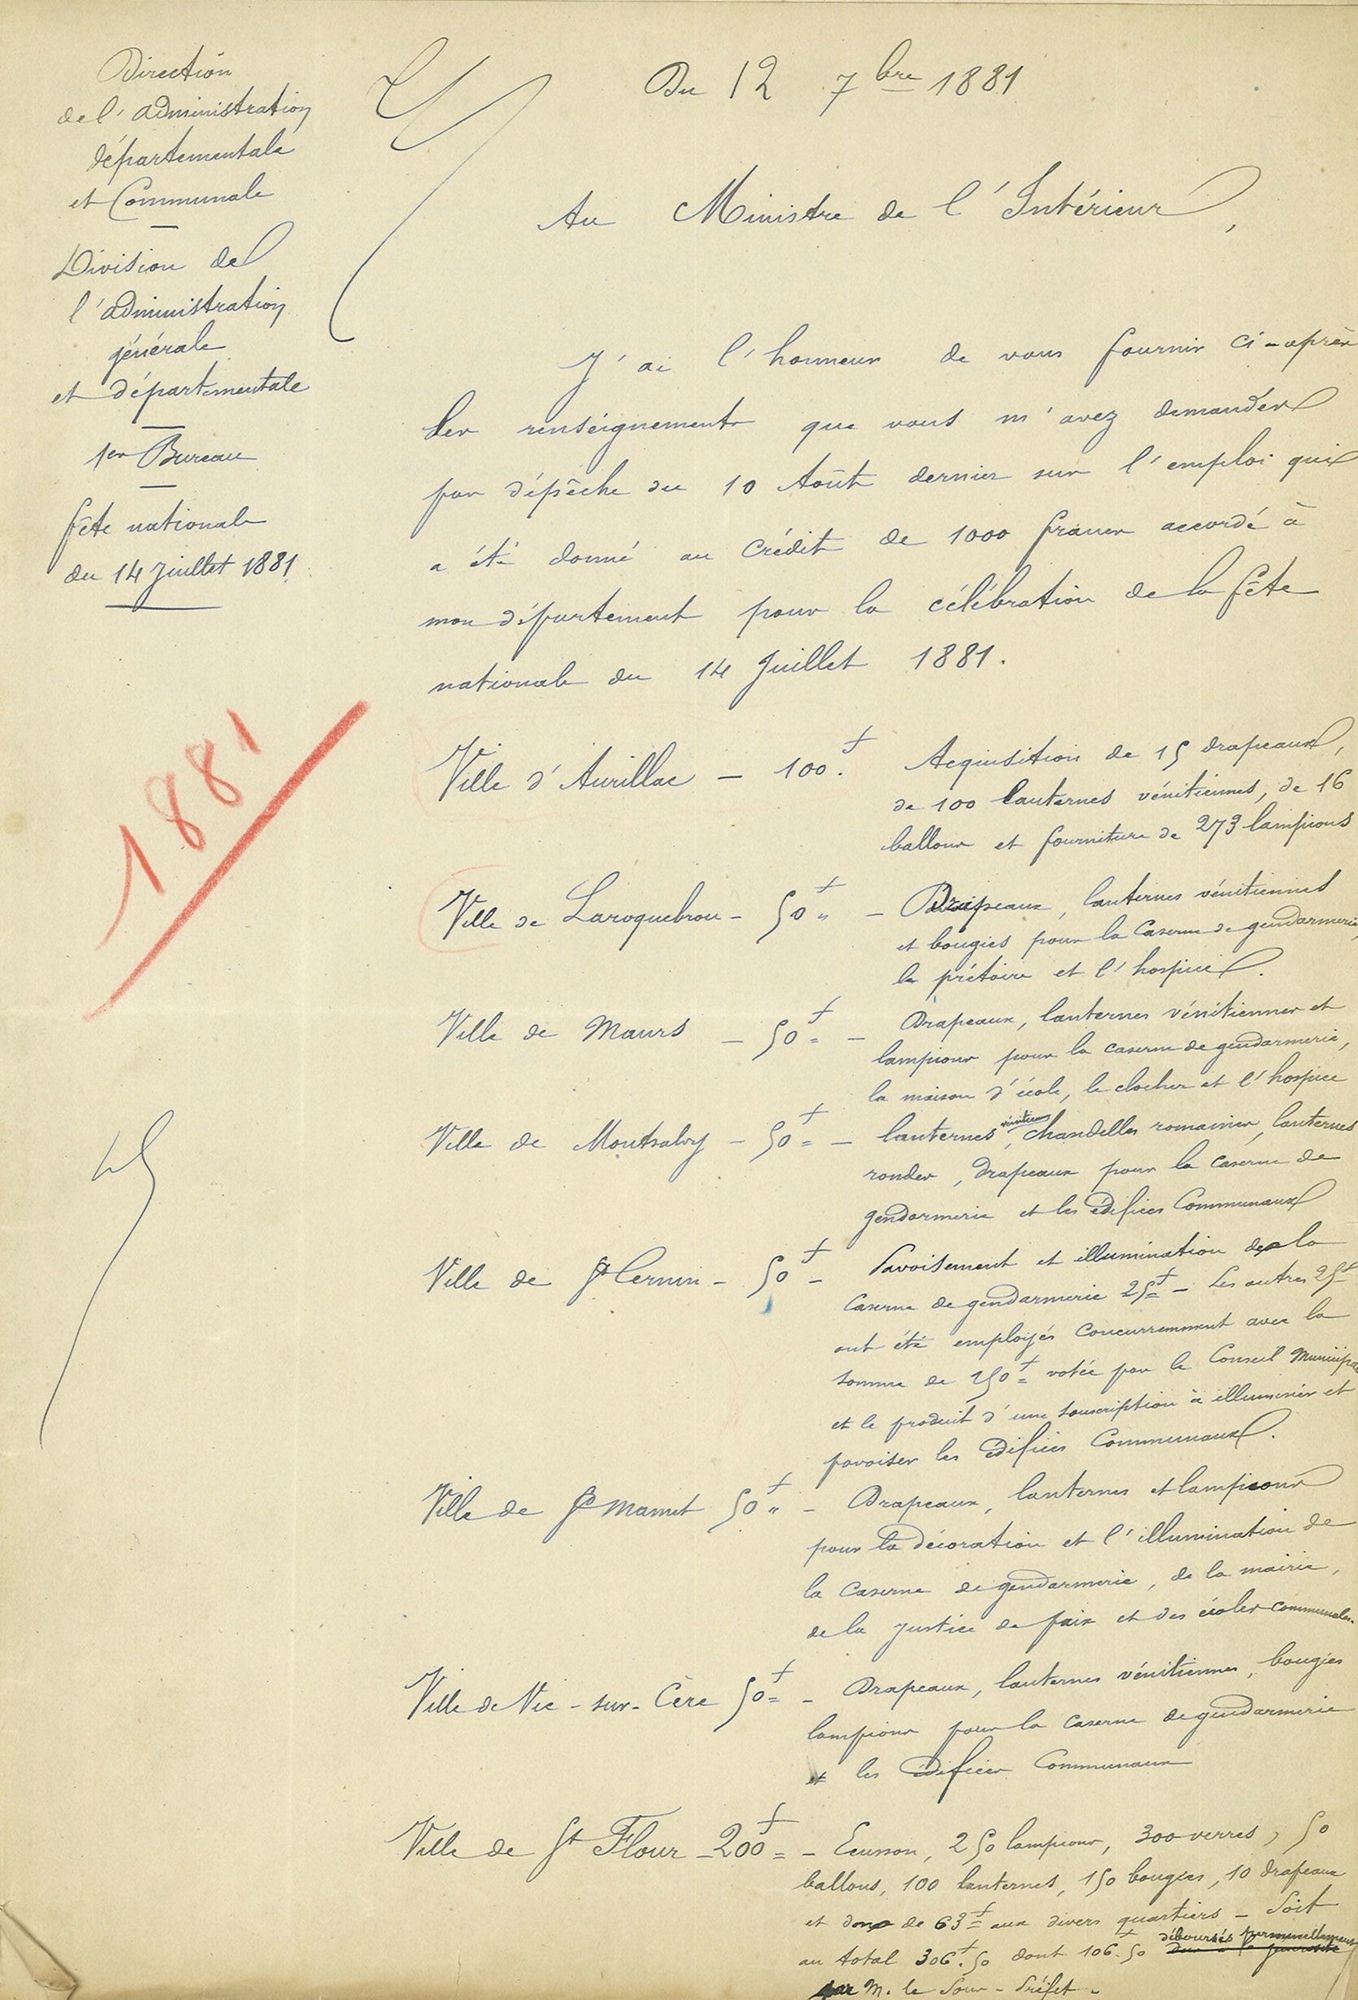 Direction
de l'administration
départementale
et Communale
Division de
l'administration
générale
et départementale
1er Bureau
Fête nationale
du 14 Juillet 1881
1881
Du 12 7bre 1881
Au Ministre de l'Intérieur,
J'ai l'honneur de vous fournir ci-après
les renseignements que vous m'avez demandés
par dépêche du 10 Août dernier sur l'emploi qui
a été donné au crédit de 1000 francs accordé à
mon département pour la célébration de la fête
nationale du 14 Juillet 1881.
Ville d'Aurillac – 100f. Acquisition de 15 drapeaux,
de 100 lanternes vénitiennes, de 16
ballons et fourniture de 273 lampions
Ville de Laroquebrou – 50f " – Drapeaux, lanternes vénitiennes
et bougies pour la Caserne de gendarmerie,
le prétoire et l'hospice.
Ville de Maurs – 50f = – Drapeaux, lanternes vénitiennes et
lampions pour la caserne de gendarmerie,
la maison d'école, le clocher et l'hospice
Ville de Montsalvy – 50f = – lanternes vénitiennes, chandelles romaines, lanternes
rondes, drapeaux pour la caserne de
gendarmerie et les édifices Communaux
Ville de St Cernin – 50f – Pavoisement et illumination de la
Caserne de gendarmerie 25f = – Les autres 25f
ont été employés concurremment avec la
somme de 150f = votée par le Conseil Municipal
et le produit d'une souscription à illuminer et
pavoiser les édifices Communaux.
Ville de St Mamet 50f " – Drapeaux, lanternes et lampions
pour la décoration et l'illumination de
la caserne de gendarmerie, de la mairie,
de la justice de paix et des écoles communales.
Ville de Vic-sur-Cère 50f = – Drapeaux, lanternes vénitiennes, bougies
lampions pour la caserne de gendarmerie
et les édifices Communaux
Ville de St Flour – 200f = – Ecusson, 250 lampions, 300 verres, 50
ballons, 100 lanternes, 150 bougies, 10 drapeaux
et dons de 63f = aux divers quartiers – Soit
au total 306f.50 dont 106f.50 déboursés personnellement
par M. le Sous-Préfet.